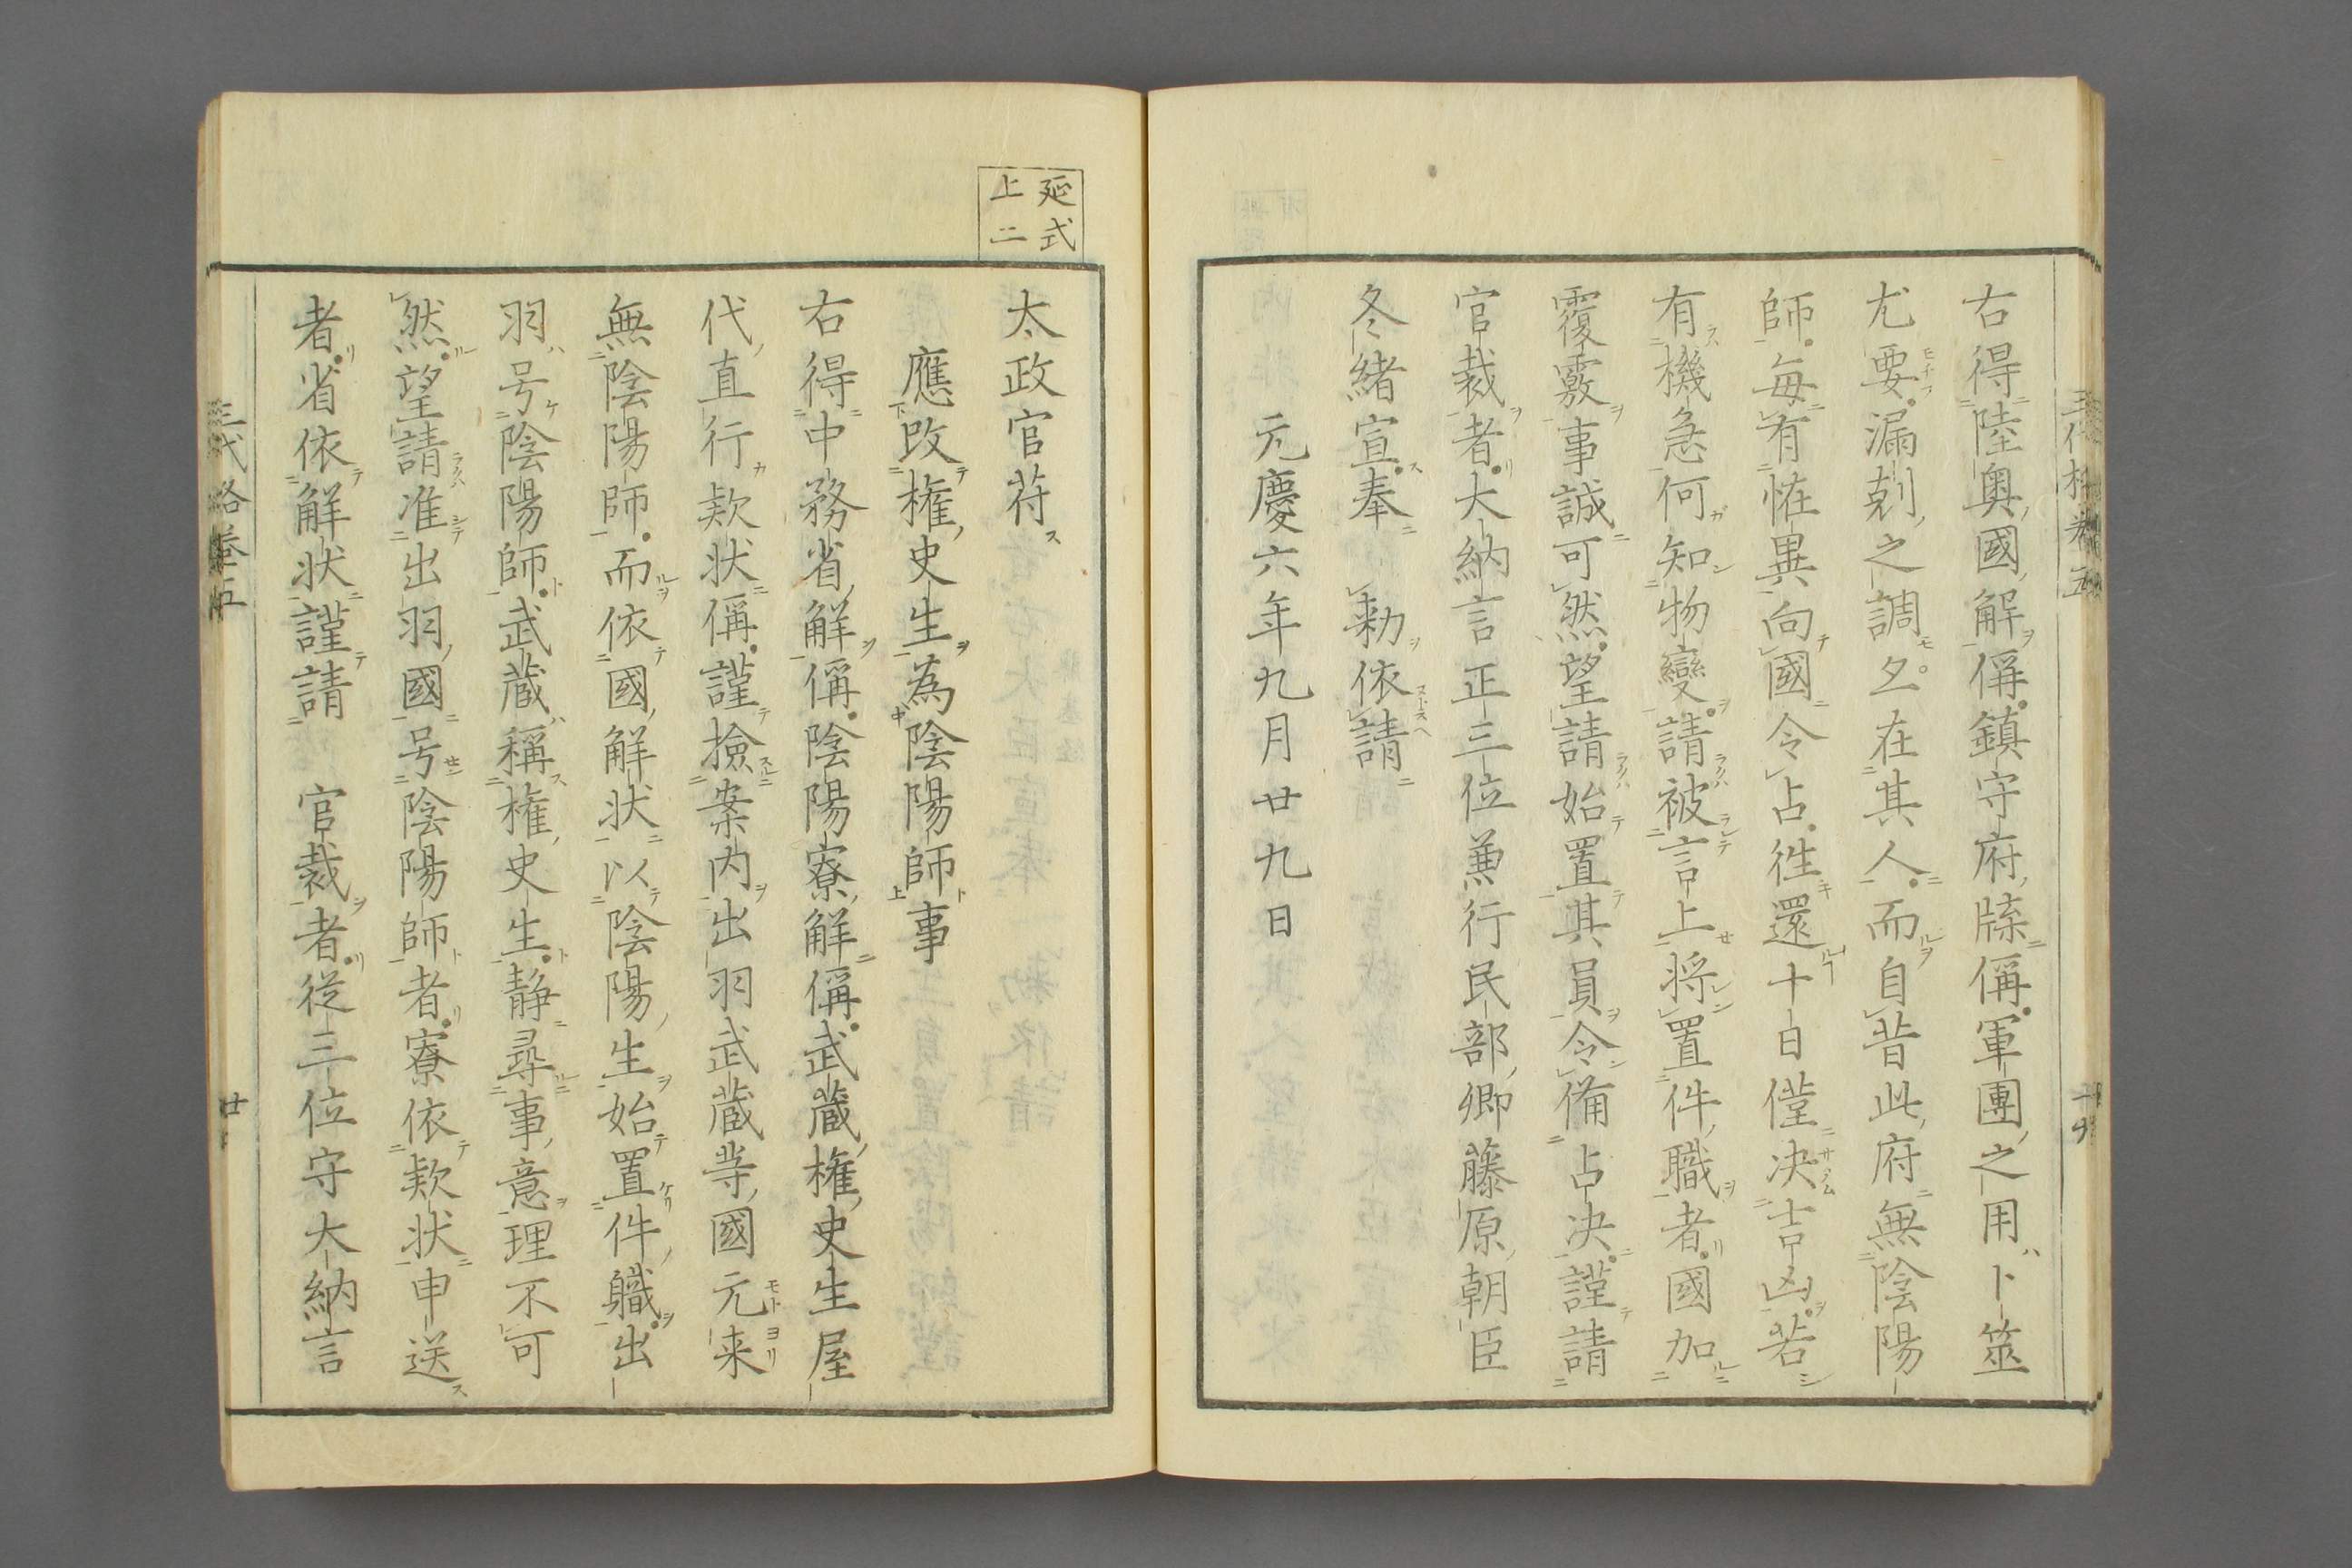 右得陸奥國解偁鎮守府牒偁軍團之用卜筮
尤要漏剋之調亦在其人而自昔此府無陰陽
師毎有恠異向國令占徃還十日僅决吉凶若
有機急何知物變請被言上将置件職者國加
覆覈事誠可然望請始置其員令備占决謹請
官裁者大納言正三位兼行民部卿藤原朝臣
冬緒宣奉　勅依請
元慶六年九月廿九日
延式
上二
太政官苻
應改権史生為陰陽師事
右得中務省解偁陰陽寮解偁武蔵権史生屋
代直行欵状偁謹撿案内出羽武蔵等國元来
無陰陽師而依國解状以陰陽生始置件職出
羽号陰陽師武蔵稱権史生静尋事意理不可
然望請准出羽國号陰陽師者寮依欵状申送
者省依解状謹請　官裁者從三位守大納言
三代格卷五
廿